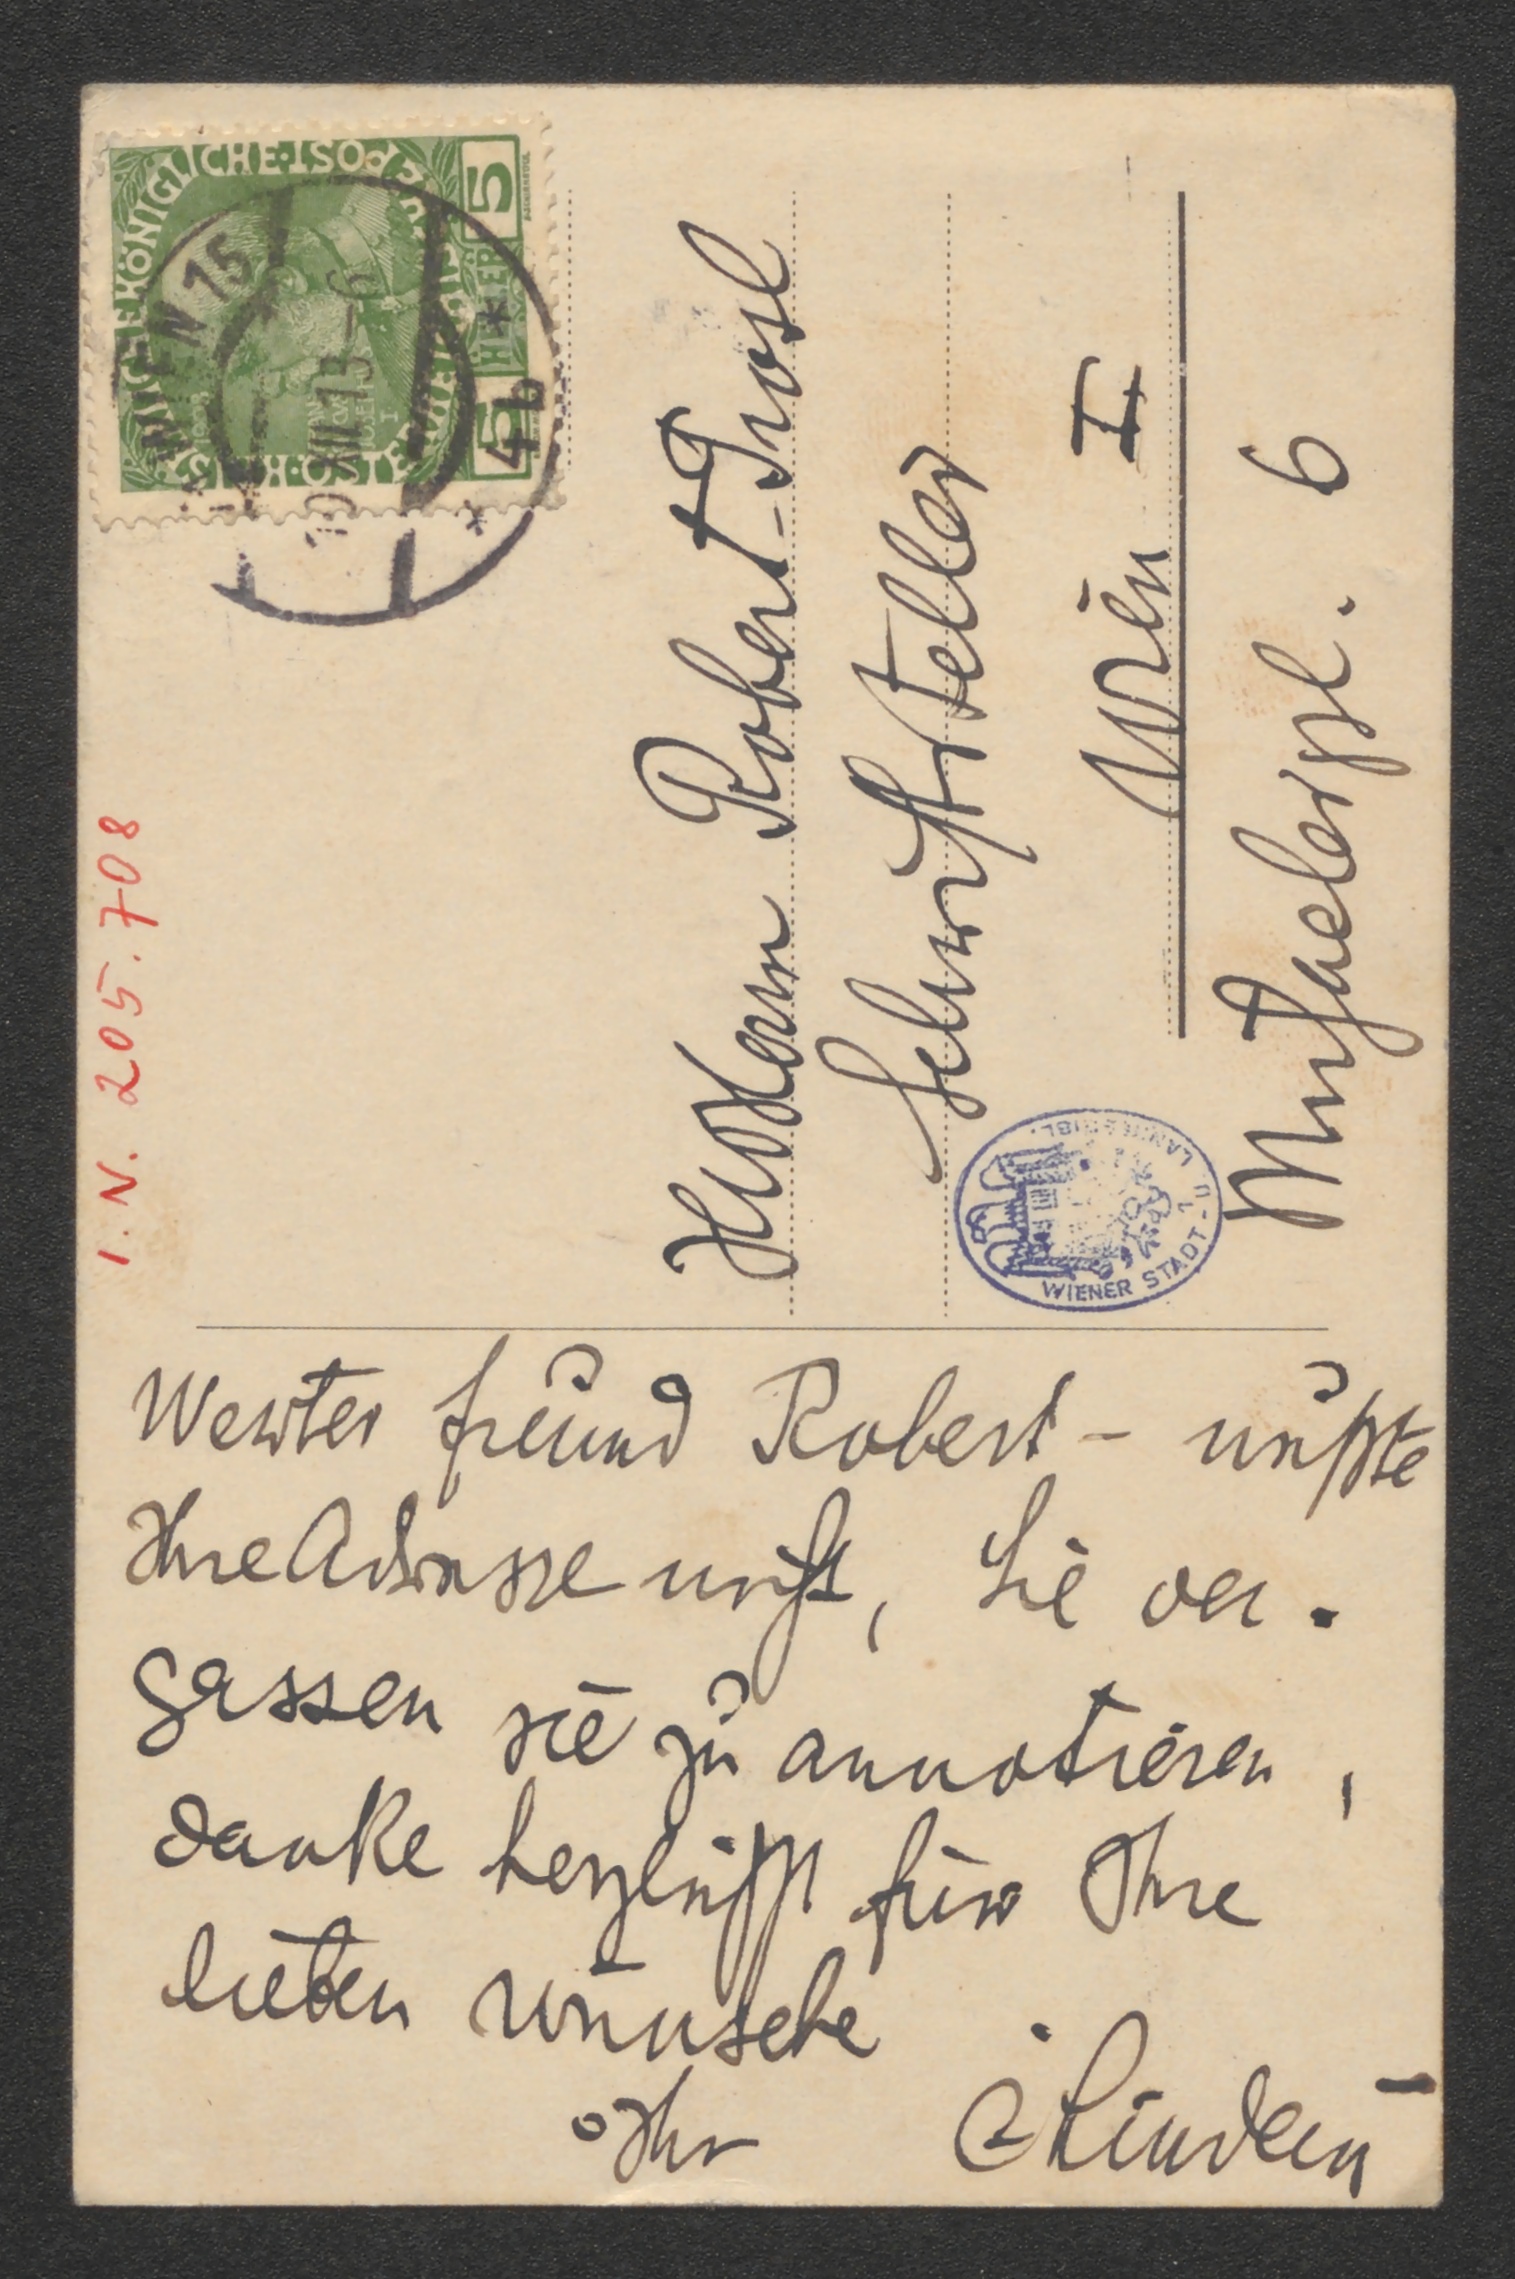 I. N. 205.708
KAISERLICHE KÖNIGLICHE POST
5 HELLER 5
1908
WIEN 75
XII 13-6
4b
Herrn Robert
Schriftsteller
Wien I
Michaelerpl. 6
WIENER STADT- U. LANDESBIBL.
Werter Freund Robert - wußte
Ihre Adresse nicht, Sie ver-
gassen sie zu annotieren,
danke herzlichst für Ihre
lieben Wünsche
Ihr